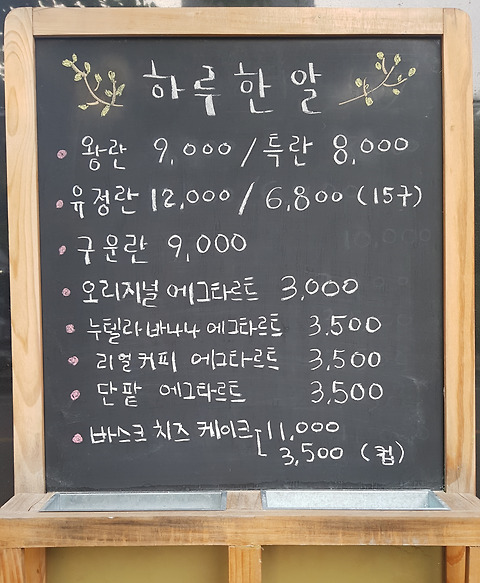 하루한알
왕란 9,000 / 특란 8,000
유정란 12,000 / 6,800 (15구)
구운란 9,000
오리지널 에그타르트 3,000
누텔라바나나 에그타르트 3.500
리얼커피 에그타르트 3,500
단팥 에그타르트 3,500
바스크 치즈 케이크 11,000
3,500 (컵)